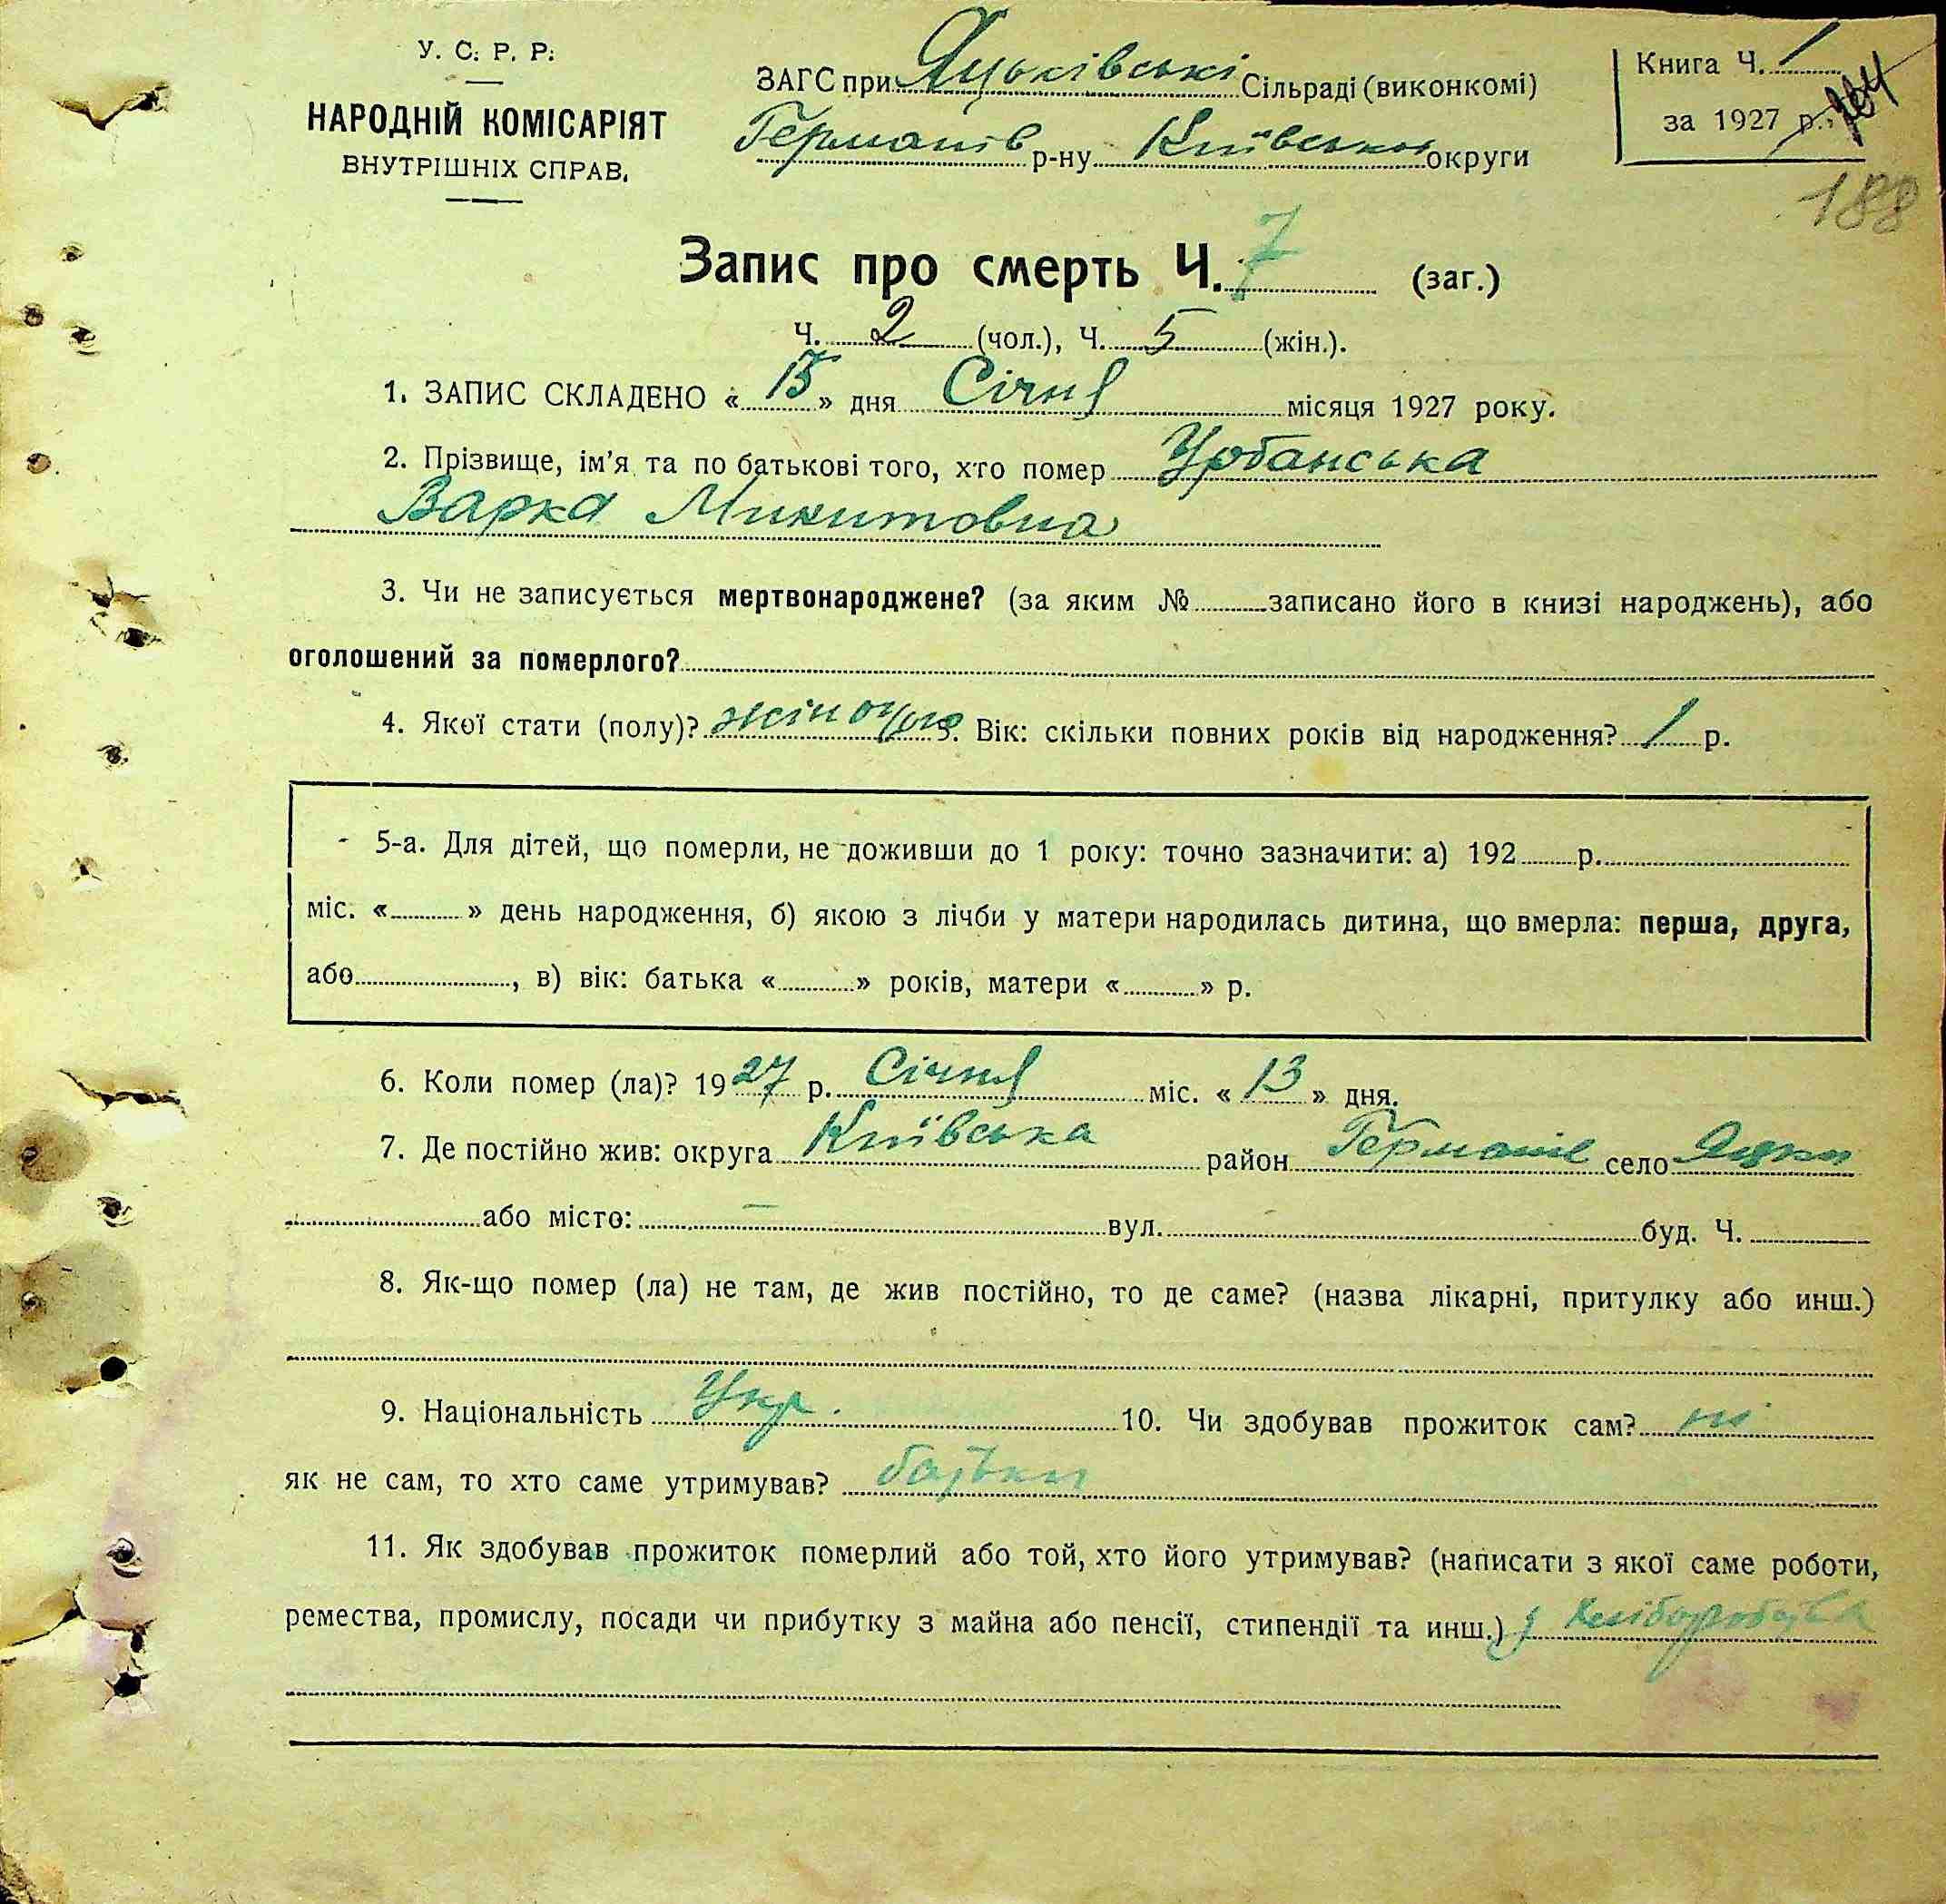 У. С. Р. Р.
НАРОДНІЙ КОМІСАРІЯТ
ВНУТРІШНІХ СПРАВ.
ЗАГС при Яцьківські Сільраді (виконкомі)
Германів р-ну Київської округи
Книга Ч. 1
за 1927 р.
188
Запис про смерть Ч. 7 (заг.)
Ч. 2 (чол.), Ч. 5 (жін.).
1. ЗАПИС СКЛАДЕНО « 15 » дня Січня місяця 1927 року.
2. Прізвище, ім'я та по батькові того, хто помер Урбанська
Варка Микитовна
3. Чи не записується мертвонароджене? (за яким № записано його в книзі народжень), або
оголошений за померлого?
4. Якої стати (полу)? жіночого 5. Вік: скільки повних років від народження? 1 р.
5-а. Для дітей, що померли, не доживши до 1 року: точно зазначити: а) 192 р.
міс. « » день народження, б) якою з лічби у матери народилась дитина, що вмерла: перша, друга,
або , в) вік: батька « » років, матери « » р.
6. Коли помер (ла)? 1927 р. Січня міс. « 13 » дня.
7. Де постійно жив: округа Київська район Германів село Яцки
або місто: — вул. буд. Ч.
8. Як-що помер (ла) не там, де жив постійно, то де саме? (назва лікарні, притулку або инш.)
9. Національність Укр. 10. Чи здобував прожиток сам? ні
як не сам, то хто саме утримував? батьки
11. Як здобував прожиток померлий або той, хто його утримував? (написати з якої саме роботи,
ремества, промислу, посади чи прибутку з майна або пенсії, стипендії та инш.) з хліборобства